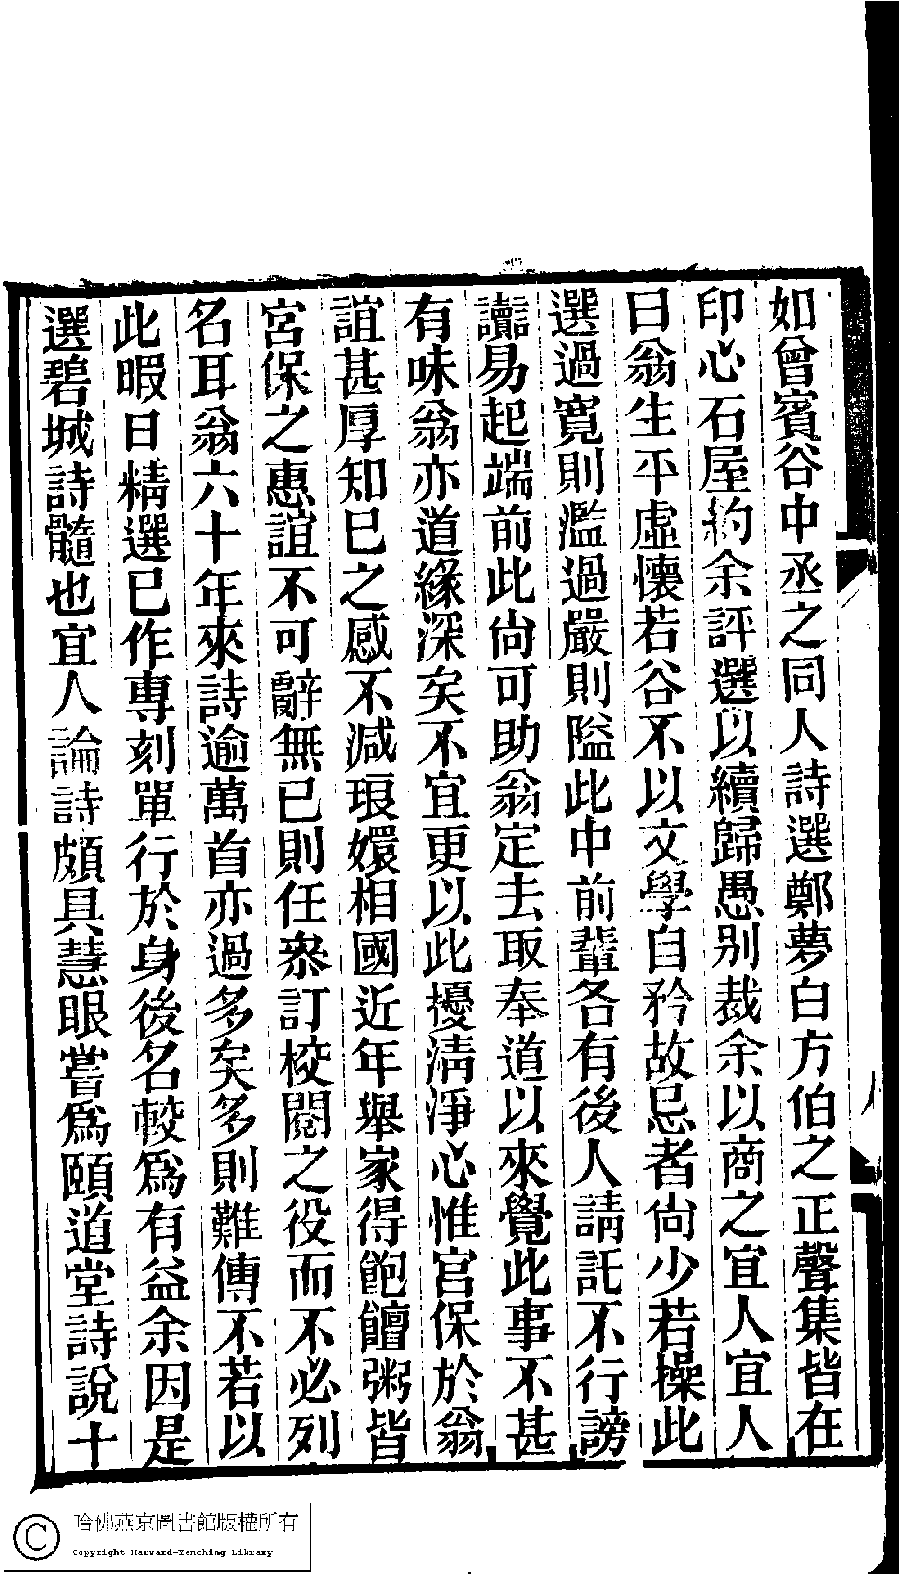 如曾賓谷中丞之同人詩選鄭夢白方伯之正聲集皆在
印心石屋約余評選以續歸愚別裁余以商之宜人宜人
曰翁生平虛懷若谷不以文學自矜故忌者尙少若操此
選過寬則濫過嚴則隘此中前輩各有後人請託不行謗
讟易起端前此尙可助翁定去取奉道以來覺此事不甚
有味翁亦道緣深矣不宜更以此擾淸淨心惟宮保於翁
誼甚厚知已之感不減琅嬛相國近年舉家得飽饘粥皆
宮保之惠誼不可辭無已則任叅訂校閱之役而不必列
名耳翁六十年來詩逾萬首亦過多矣多則難傳不若以
此暇日精選已作專刻單行於身後名較爲有益余因是
選碧城詩髓也宜人論詩頗具慧眼嘗爲頤道堂詩說十
哈佛燕京圖書館版權所有
Copyright Harvard-Yenching Library